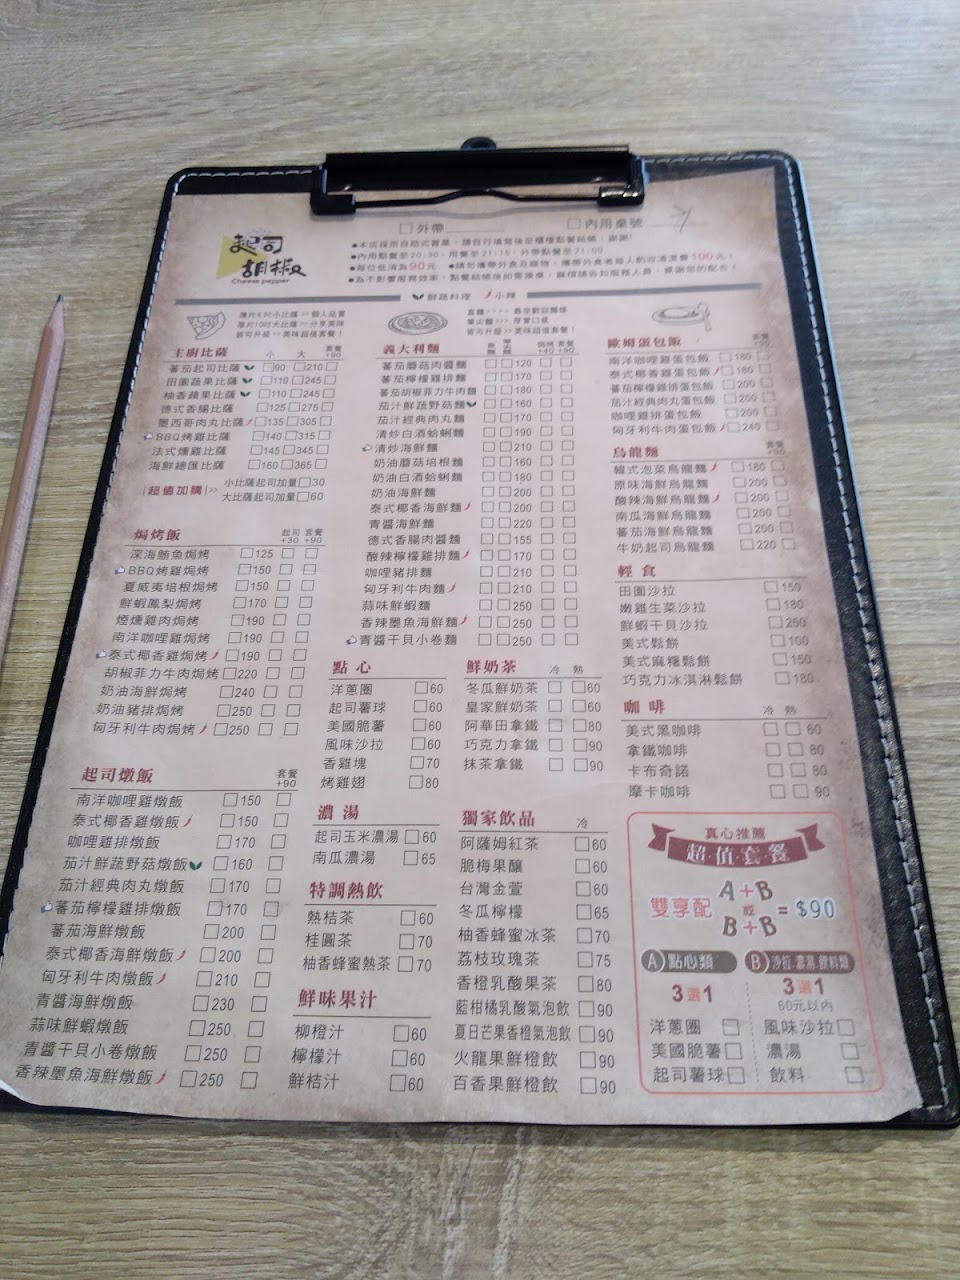 起司胡椒
Cheese pepper
□外帶
□內用桌號 7
●本店採用自助式買單，請自行填寫後至櫃檯點餐結帳，謝謝!
●內用點餐至20:30，用餐至21:15，外帶點餐至21:00
●每位低消為90元 ●請勿攜帶外食及寵物，攜帶外食者每人酌收清潔費100元!
●為不影響服務效率，點餐結帳後如需換桌，麻煩請告知服務人員，感謝您的配合!
鮮蔬料理 小辣
薄片6吋小比薩>>個人品嘗
薄片10吋大比薩>>分享美味
皆可升級>>美味超值套餐!
主廚比薩 小 大 套餐+90
蕃茄起司比薩 □90 □210 □
田園蔬果比薩 □110 □245 □
柚香蘋果比薩 □110 □245 □
德式香腸比薩 □125 □275 □
墨西哥肉丸比薩 □135 □305 □
BBQ烤雞比薩 □140 □315 □
法式燻雞比薩 □145 □345 □
海鮮總匯比薩 □160 □365 □
|超值加購|>> 小比薩起司加量□30
大比薩起司加量□60
焗烤飯 起司+30 套餐+90
深海鮪魚焗烤 □125 □ □
BBQ烤雞焗烤 □150 □ □
夏威夷培根焗烤 □150 □ □
鮮蝦鳳梨焗烤 □170 □ □
煙燻雞肉焗烤 □190 □ □
南洋咖哩雞焗烤 □190 □ □
泰式椰香雞焗烤 □190 □ □
胡椒菲力牛肉焗烤 □220 □ □
奶油海鮮焗烤 □240 □ □
奶油豬排焗烤 □250 □ □
匈牙利牛肉焗烤 □250 □ □
起司燉飯 套餐+90
南洋咖哩雞燉飯 □150 □
泰式椰香雞燉飯 □150 □
咖哩雞排燉飯 □150 □
茄汁鮮蔬野菇燉飯 □160 □
茄汁經典肉丸燉飯 □170 □
蕃茄檸檬雞排燉飯 □170 □
蕃茄海鮮燉飯 □200 □
泰式椰香海鮮燉飯 □200 □
匈牙利牛肉燉飯 □210 □
青醬海鮮燉飯 □230 □
蒜味鮮蝦燉飯 □250 □
青醬干貝小卷燉飯 □250 □
香辣墨魚海鮮燉飯 □250 □
直麵>>>>最受歡迎麵條
筆尖麵>>厚實口感
皆可升級>>美味超值套餐!
義大利麵 直麵 筆尖麵 焗烤+40 套餐+90
蕃茄蘑菇肉醬麵 □ □120 □ □
蕃茄檸檬雞排麵 □ □170 □ □
蕃茄胡椒菲力牛肉麵 □ □180 □ □
茄汁鮮蔬野菇麵 □ □160 □ □
茄汁經典肉丸麵 □ □170 □ □
清炒白酒蛤蜊麵 □ □190 □ □
清炒海鮮麵 □ □210 □ □
奶油蘑菇培根麵 □ □160 □ □
奶油白酒蛤蜊麵 □ □180 □ □
奶油海鮮麵 □ □200 □ □
泰式椰香海鮮麵 □ □200 □ □
青醬海鮮麵 □ □220 □ □
德式香腸肉醬麵 □ □155 □ □
酸辣檸檬雞排麵 □ □170 □ □
咖哩豬排麵 □ □210 □ □
匈牙利牛肉麵 □ □210 □ □
蒜味鮮蝦麵 □ □250 □ □
香辣墨魚海鮮麵 □ □250 □ □
青醬干貝小卷麵 □ □250 □ □
點心
洋蔥圈 □60
起司薯球 □60
美國脆薯 □60
風味沙拉 □60
香雞塊 □70
烤雞翅 □80
濃湯
起司玉米濃湯 □60
南瓜濃湯 □65
特調熱飲
熱桔茶 □60
桂圓茶 □70
柚香蜂蜜熱茶 □70
鮮味果汁
柳橙汁 □60
檸檬汁 □60
鮮桔汁 □60
鮮奶茶 冷 熱
冬瓜鮮奶茶 □ □60
皇家鮮奶茶 □ □60
阿華田拿鐵 □ □80
巧克力拿鐵 □ □90
抹茶拿鐵 □ □90
獨家飲品 冷
阿薩姆紅茶 □60
脆梅果釀 □60
台灣金萱 □60
冬瓜檸檬 □65
柚香蜂蜜冰茶 □70
荔枝玫瑰茶 □75
香橙乳酸果茶 □80
藍柑橘乳酸氣泡飲 □90
夏日芒果香橙氣泡飲 □90
火龍果鮮橙飲 □90
百香果鮮橙飲 □90
歐姆蛋包飯 套餐+90
南洋咖哩雞蛋包飯 □180 □
泰式椰香雞蛋包飯 □180 □
蕃茄檸檬雞排蛋包飯 □200 □
茄汁經典肉丸蛋包飯 □200 □
咖哩雞排蛋包飯 □200 □
匈牙利牛肉蛋包飯 □240 □
烏龍麵 套餐+90
韓式泡菜烏龍麵 □180 □
原味海鮮烏龍麵 □200 □
酸辣海鮮烏龍麵 □200 □
南瓜海鮮烏龍麵 □200 □
蕃茄海鮮烏龍麵 □200 □
牛奶起司烏龍麵 □220 □
輕食
田園沙拉 □150
嫩雞生菜沙拉 □180
鮮蝦干貝沙拉 □250
美式鬆餅 □100
美式麻糬鬆餅 □150
巧克力冰淇淋鬆餅 □180
咖啡 冷 熱
美式黑咖啡 □ □60
拿鐵咖啡 □ □80
卡布奇諾 □ □80
摩卡咖啡 □ □90
真心推薦
超·值·套·餐
雙享配 A+B 或 B+B =$90
A 點心類
3選1
洋蔥圈□
美國脆薯□
起司薯球□
B 沙拉.濃湯.飲料類
3選1
60元以內
風味沙拉□
濃湯 □
飲料 □